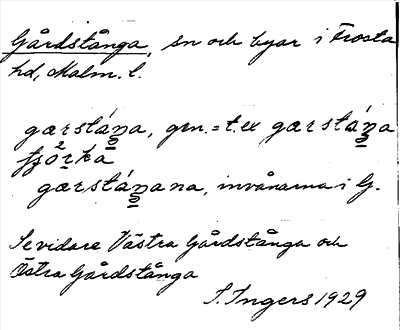 Gårdstånga, sn och byar i Frosta
hd, Malm. l.
gærstáŋa, gen. = t.ex gærstáŋa
fjörka
gærstáŋana, invånarna i G.
Se vidare Västra Gårdstånga och
Östra Gårdstånga
S. Ingers 1929